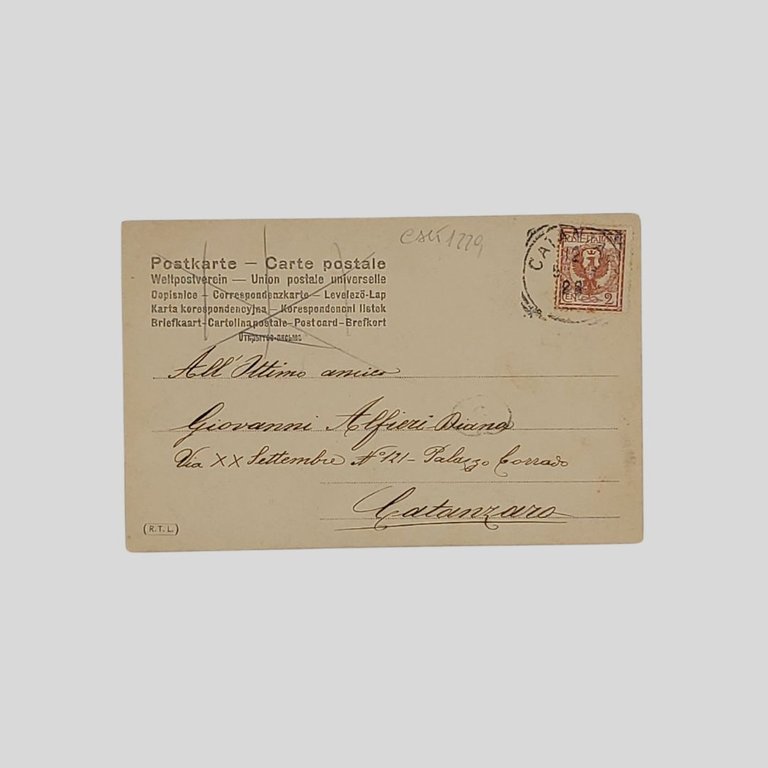 Postkarte — Carte postale
Weltpostverein — Union postale universelle
Dopisnice — Correspondenzkarte — Levelező-Lap
Karta korespondencyjna — Korespondencni listek
Briefkaart-Cartolina postale-Postcard-Brefkort
All'Ottimo amico
Giovanni Alfieri Diana
Via XX Settembre N° 121 - Palazzo Corrado
Catanzaro
(R.T.L.)
CATAN
2